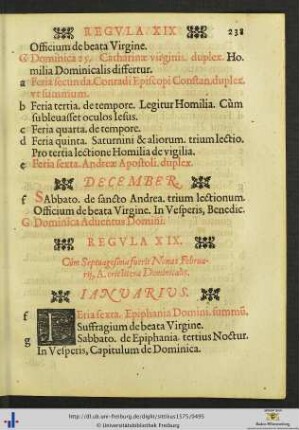 REGVLA XIX 238
Officium de beata Virgine.
G Dominica 25. Catharinæ virginis. duplex. Ho
milia Dominicalis differtur.
a Feria secunda. Conradi Episcopi Constan. duplex.
vt summum.
b Feria tertia. de tempore. Legitur Homilia. Cùm
subleuasset oculos Iesus.
c Feria quarta. de tempore.
d Feria quinta. Saturnini & aliorum. trium lectio.
Pro tertia lectione Homilia de vigilia.
e Feria sexta. Andreæ Apostoli. duplex.
DECEMBER.
f Sabbato. de sancto Andrea. trium lectionum.
Officium de beata Virgine. In Vesperis, Benedic.
G Dominica Aduentus Domini.
REGVLA XIX.
Cùm Septuagesima fuerit Nonas Februa-
rij, A. erit litera Dominicalis.
IANVARIVS.
f FEria sexta. Epiphania Domini. summū.
Suffragium de beata Virgine.
g Sabbato. de Epiphania. tertius Noctur.
In Vesperis, Capitulum de Dominica.
http://dl.ub.uni-freiburg.de/diglit/stttitus1575/0495
© Universitätsbibliothek Freiburg
Baden-Württemberg